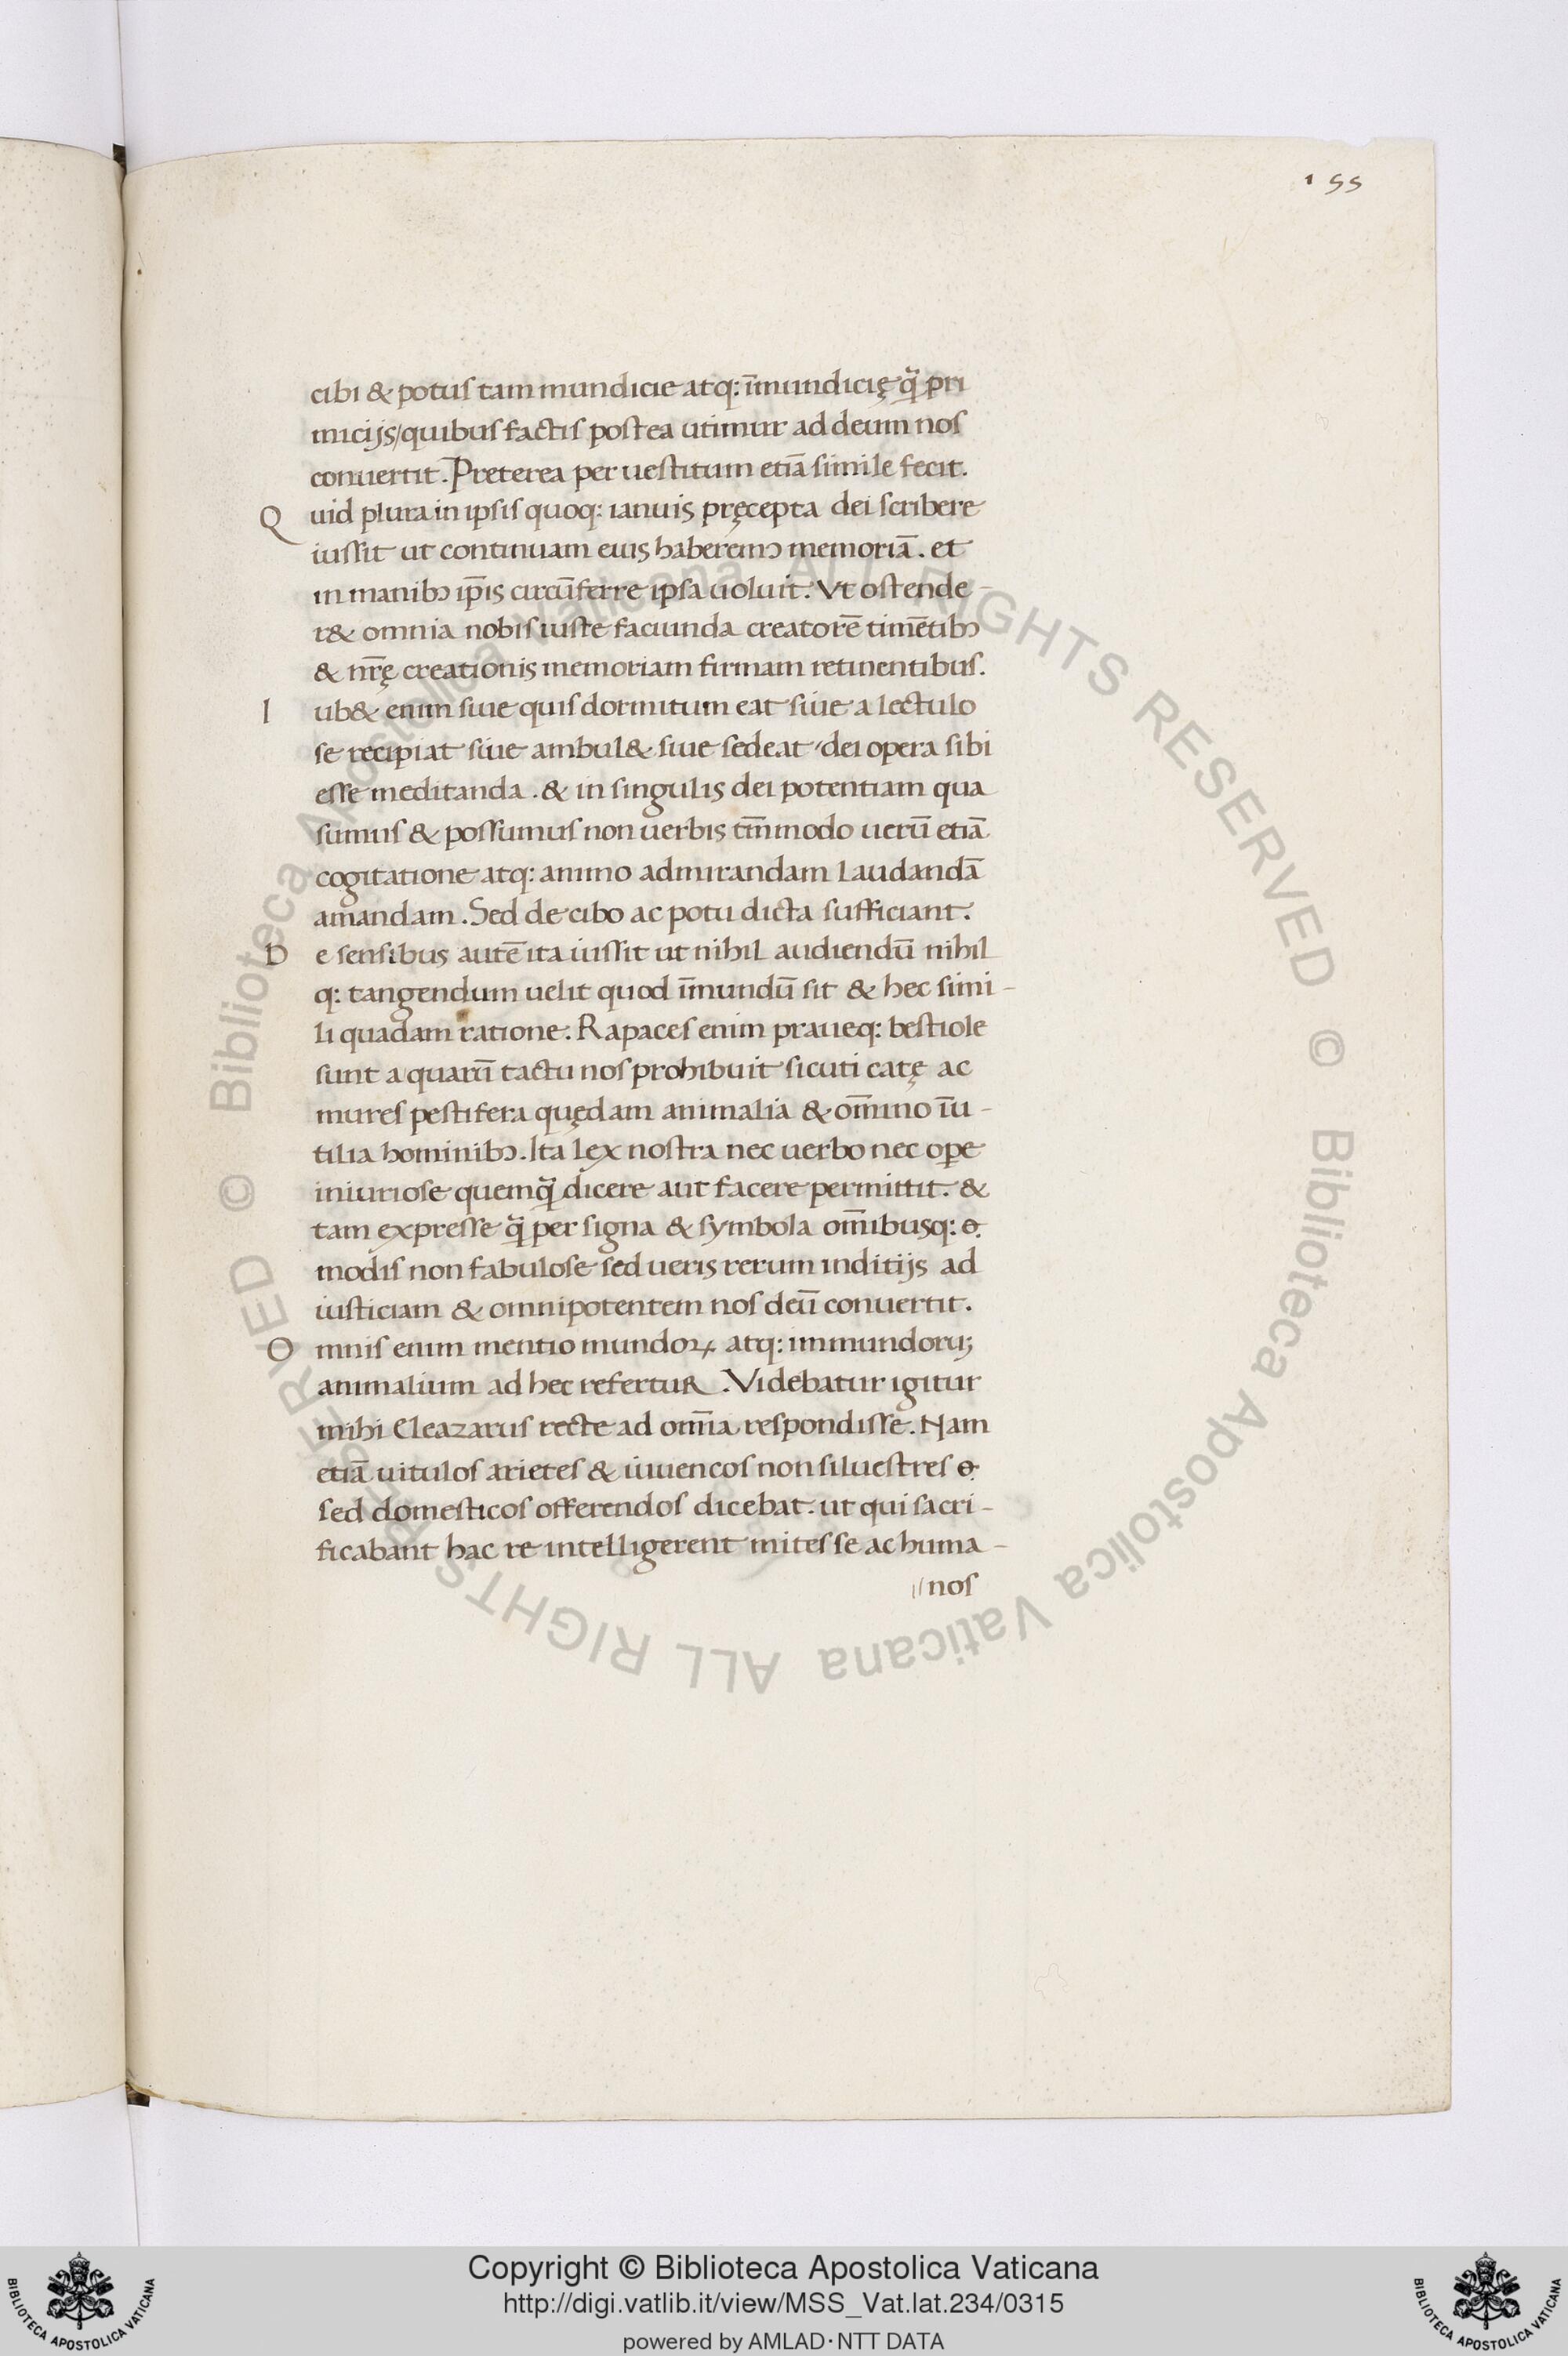 155
cibi & potus tam mundicie atq: īmundicię q̄ pri
micijs/quibus factis postea utimur ad deum nos
conuertit. Preterea per uestitum etiā simile fecit.
Quid plura in ipsis quoq: ianuis pręcepta dei scribere
iussit ut continuam eius haberemꝰ memoriā. et
in manibꝰ ip̄is circūferre ipsa uoluit. Vt ostende-
r& omnia nobis iuste faciunda creatorē timētibꝰ
& nr̄ę creationis memoriam firmam retinentibus.
Iub& enim siue quis dormitum eat siue a lectulo
se recipiat siue ambul& siue sedeat dei opera sibi
esse meditanda. & in singulis dei potentiam qua
sumus & possumus non uerbis tm̄modo uerū etiā
cogitatione atq: animo admirandam laudandā
amandam. Sed de cibo ac potu dicta sufficiant.
De sensibus autē ita iussit ut nihil audiendū nihil
q: tangendum uelit quod īmundū sit & hec simi-
li quadam ratione. Rapaces enim praueq: bestiole
sunt a quarū tactu nos prohibuit sicuti catę ac
mures pestifera quędam animalia & om̄ino īu-
tilia hominibꝰ. Ita lex nostra nec uerbo nec ope
iniuriose quemq̄ dicere aut facere permittit. &
tam expresse q̄ per signa & symbola om̄ibusq: e
modis non fabulose sed ueris rerum inditijs ad
iusticiam & omnipotentem nos deū conuertit.
Omnis enim mentio mundoꝝ atq: immundoruꝫ
animalium ad hec refertur. Videbatur igitur
mihi Eleazarus recte ad om̄ia respondisse. Nam
etiā uitulos arietes & iuuencos non siluestres e
sed domesticos offerendos dicebat. ut qui sacri-
ficabant hac re intelligerent mites se ac huma-
//nos
© Biblioteca Apostolica Vaticana ALL RIGHTS RESERVED © Biblioteca Apostolica Vaticana ALL RIGHTS RESERVED
Copyright © Biblioteca Apostolica Vaticana
http://digi.vatlib.it/view/MSS_Vat.lat.234/0315
powered by AMLAD·NTT DATA
BIBLIOTECA APOSTOLICA VATICANA
BIBLIOTECA APOSTOLICA VATICANA